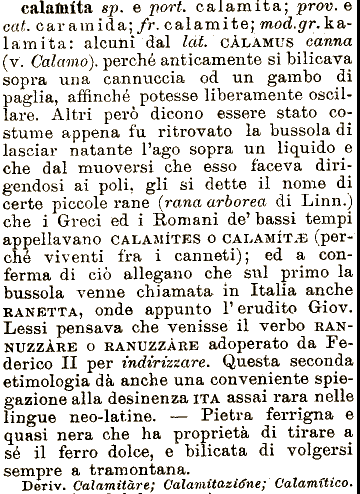 calamíta sp. e port. calamita; prov. e
cat. caramida; fr. calamite; mod.gr. ka-
lamita: alcuni dal lat. CÀLAMUS canna
(v. Calamo). perché anticamente si bilicava
sopra una cannuccia od un gambo di
paglia, affinché potesse liberamente oscil-
lare. Altri però dicono essere stato co-
stume appena fu ritrovato la bussola di
lasciar natante l'ago sopra un liquido e
che dal muoversi che esso faceva diri-
gendosi ai poli, gli si dette il nome di
certe piccole rane (rana arborea di Linn.)
che i Greci ed i Romani de' bassi tempi
appellavano CALAMÍTES O CALAMÍTÆ (per-
ché viventi fra i canneti); ed a con-
ferma di ciò allegano che sul primo la
bussola venne chiamata in Italia anche
RANETTA, onde appunto l'erudito Giov.
Lessi pensava che venisse il verbo RAN-
NUZZÀRE O RANUZZÀRE adoperato da Fe-
derico II per indirizzare. Questa seconda
etimologia dà anche una conveniente spie-
gazione alla desinenza ITA assai rara nelle
lingue neo-latine. — Pietra ferrigna e
quasi nera che ha proprietà di tirare a
sé il ferro dolce, e bilicata di volgersi
sempre a tramontana.
Deriv. Calamitàre; Calamitazióne; Calamítico.